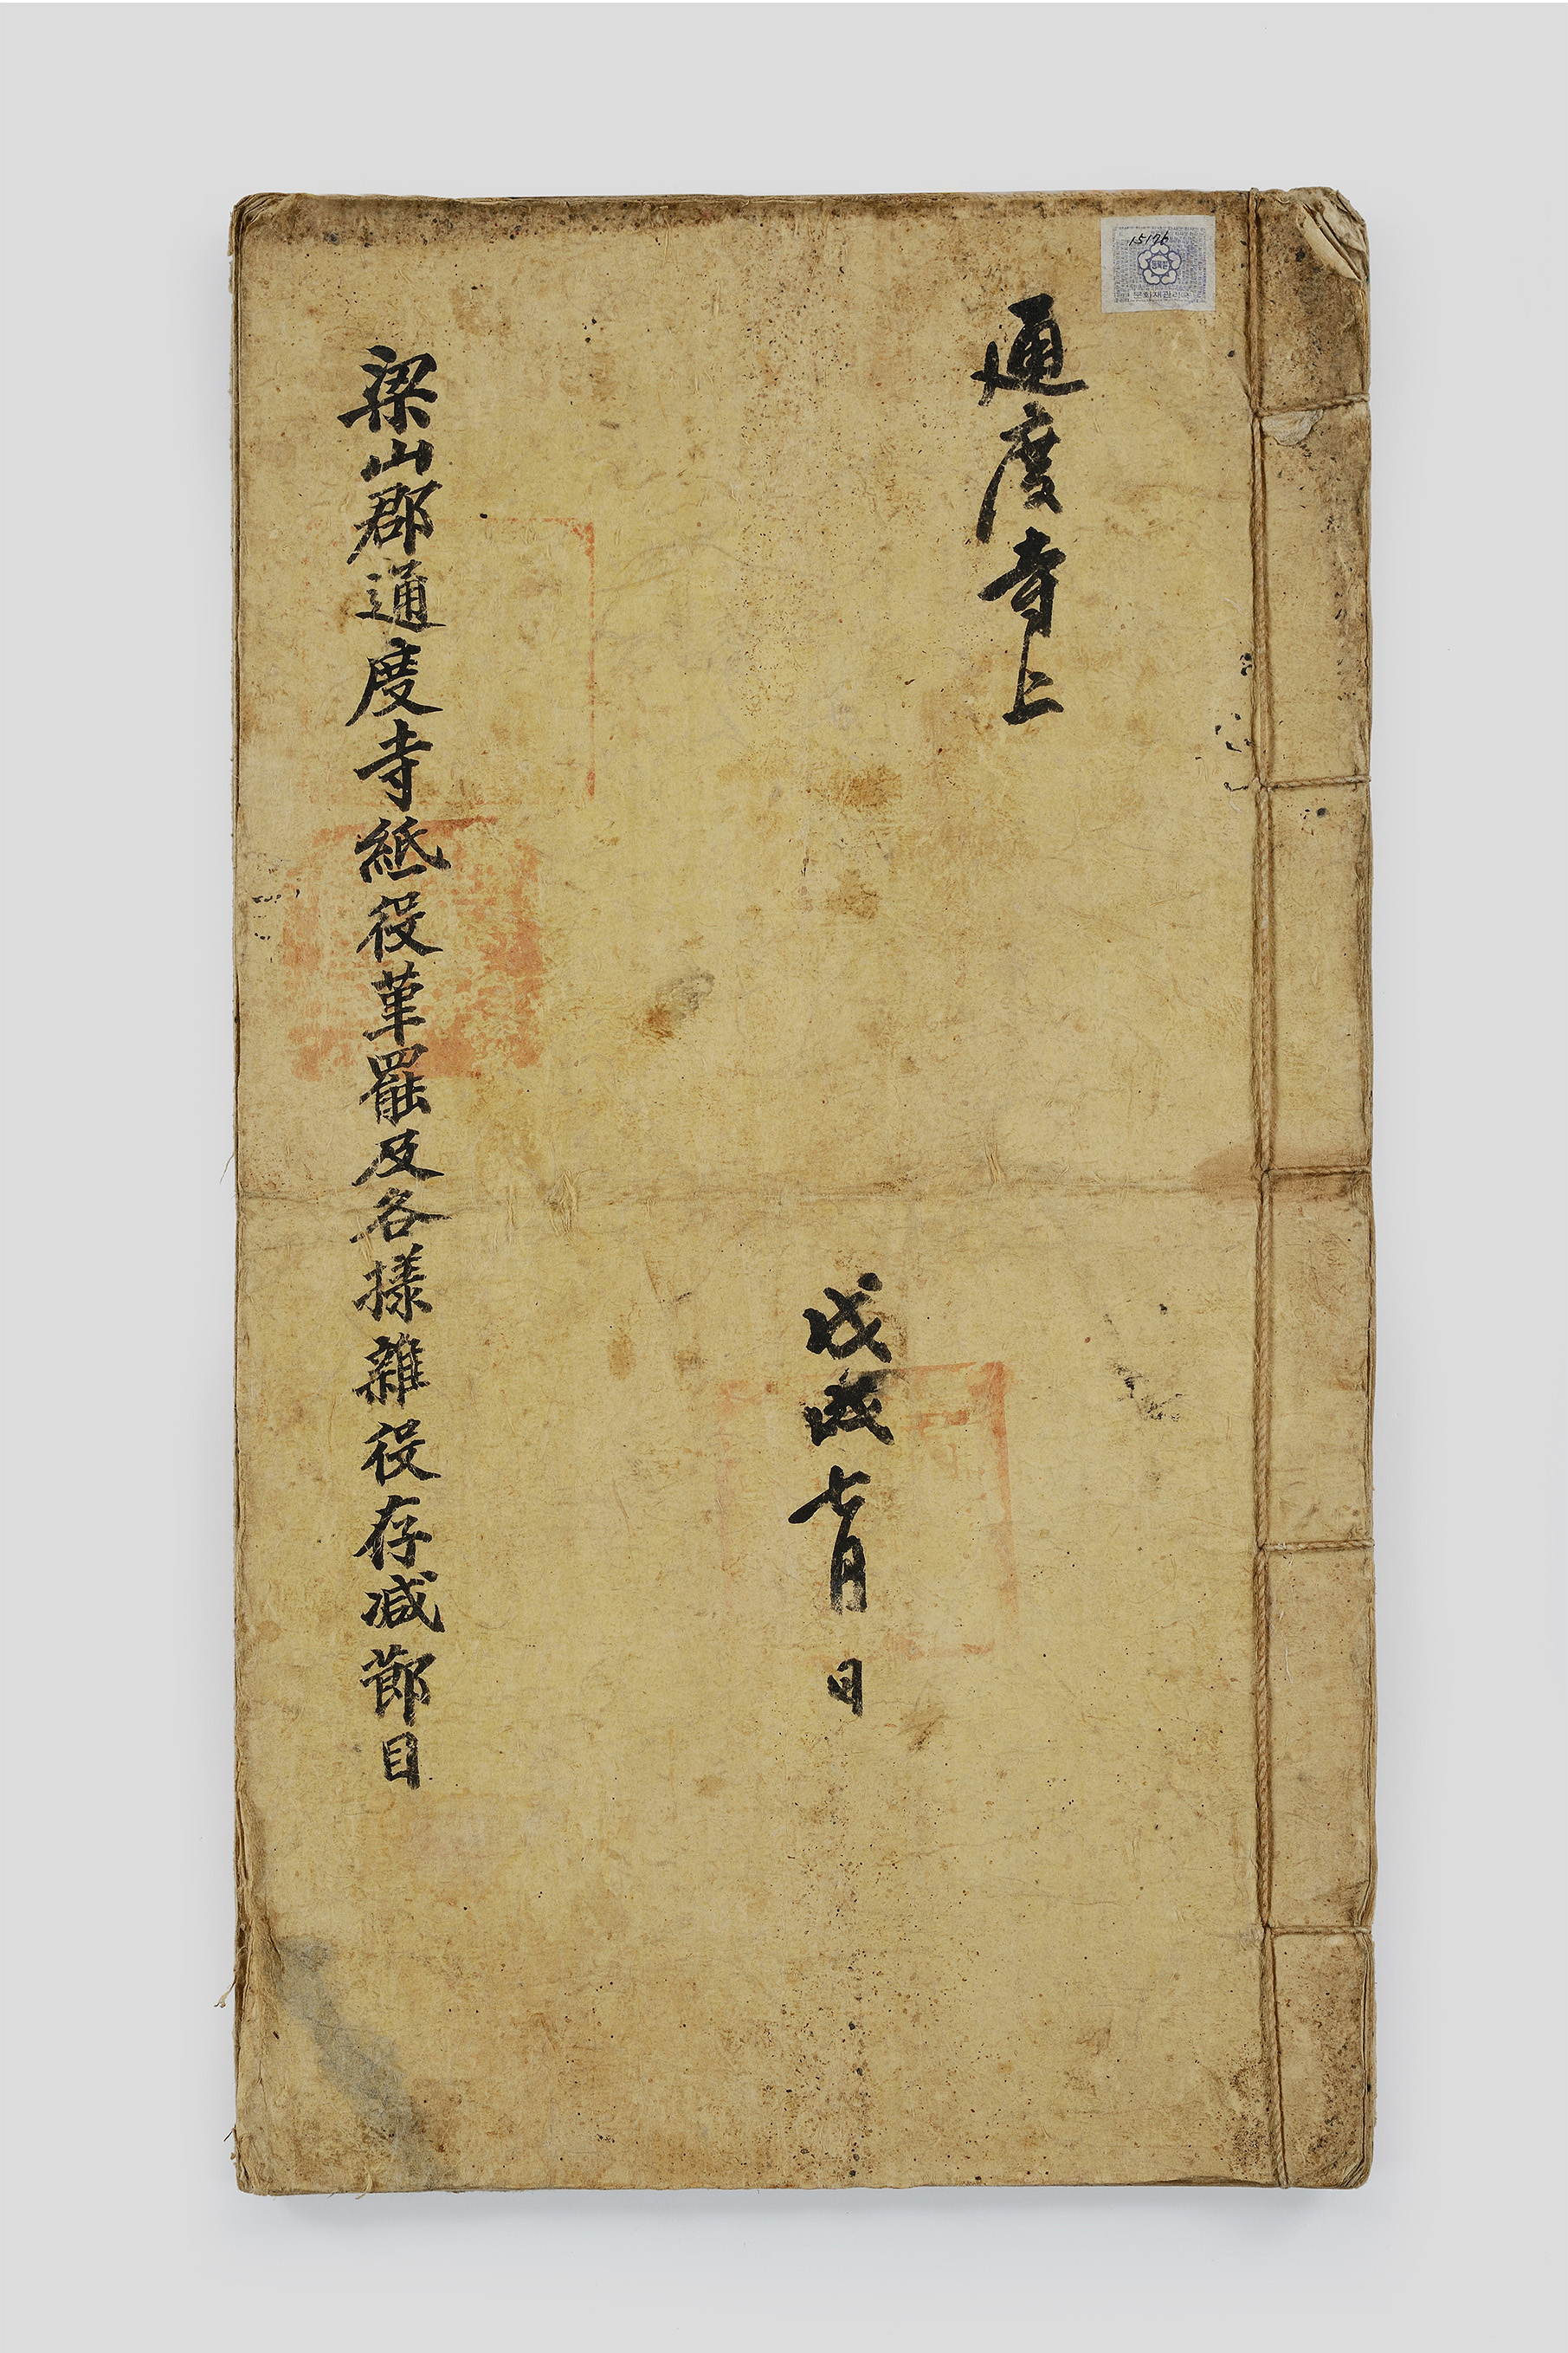 15176
문화재관리국
通度寺上
戊戌七月 日
梁山郡通度寺紙役革罷及各樣雜役存减節目